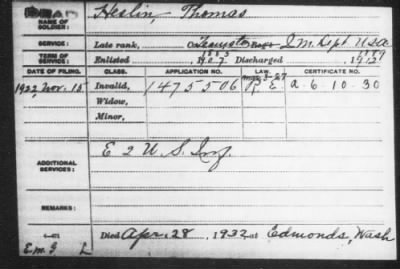 DEAD
NAME OF SOLDIER: Heslin, Thomas
SERVICE: Late rank, Co. Teamster Reg't Q.M. Dept U.S.A.
TERM OF SERVICE: Enlisted 1883 1907 Discharged 1889 1912
DATE OF FILING. CLASS. APPLICATION NO. LAW. CERTIFICATE NO.
1922, Nov. 15 Invalid, 1475506 R.E. a-6-10-30
Widow,
Minor,
ADDITIONAL SERVICES: E 2 U.S. Inf.
REMARKS:
Died Apr. 28, 1932 at Edmonds, Wash